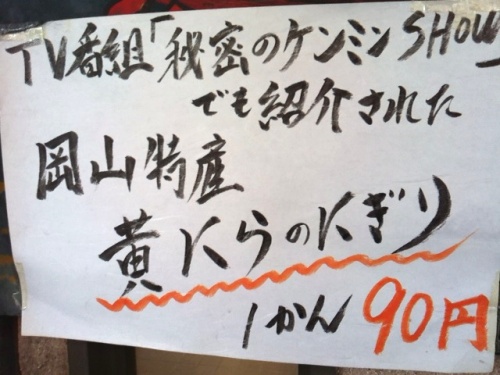 TV番組「秘密のケンミンSHOW」
でも紹介された
岡山特産
黄にらのにぎり
1かん 90円